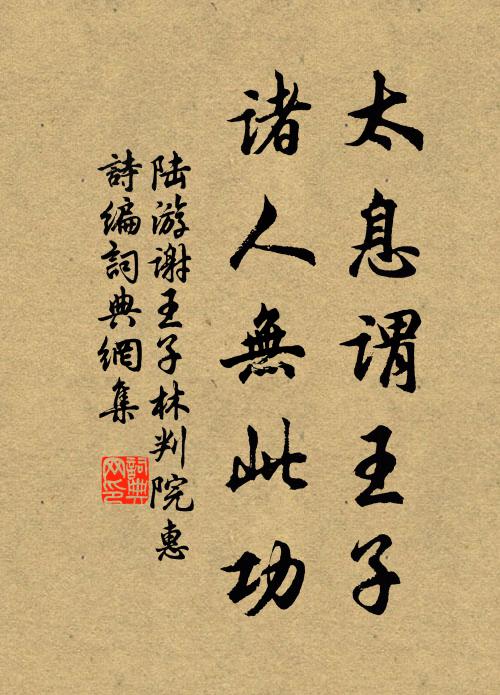 太息謂王子
诸人無此功
陆游谢王子林判院惠
詩编詞典網集
詞典
网印